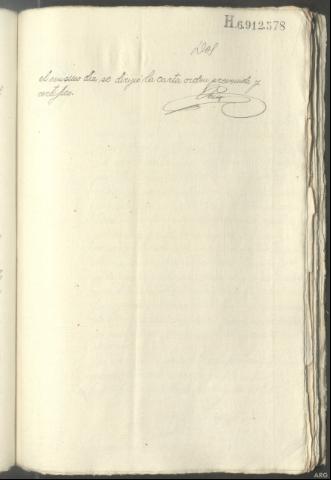 H.6.912.578
Del
el mismo dia se dirijió la carta orden prevenida y
certifico.
ARG